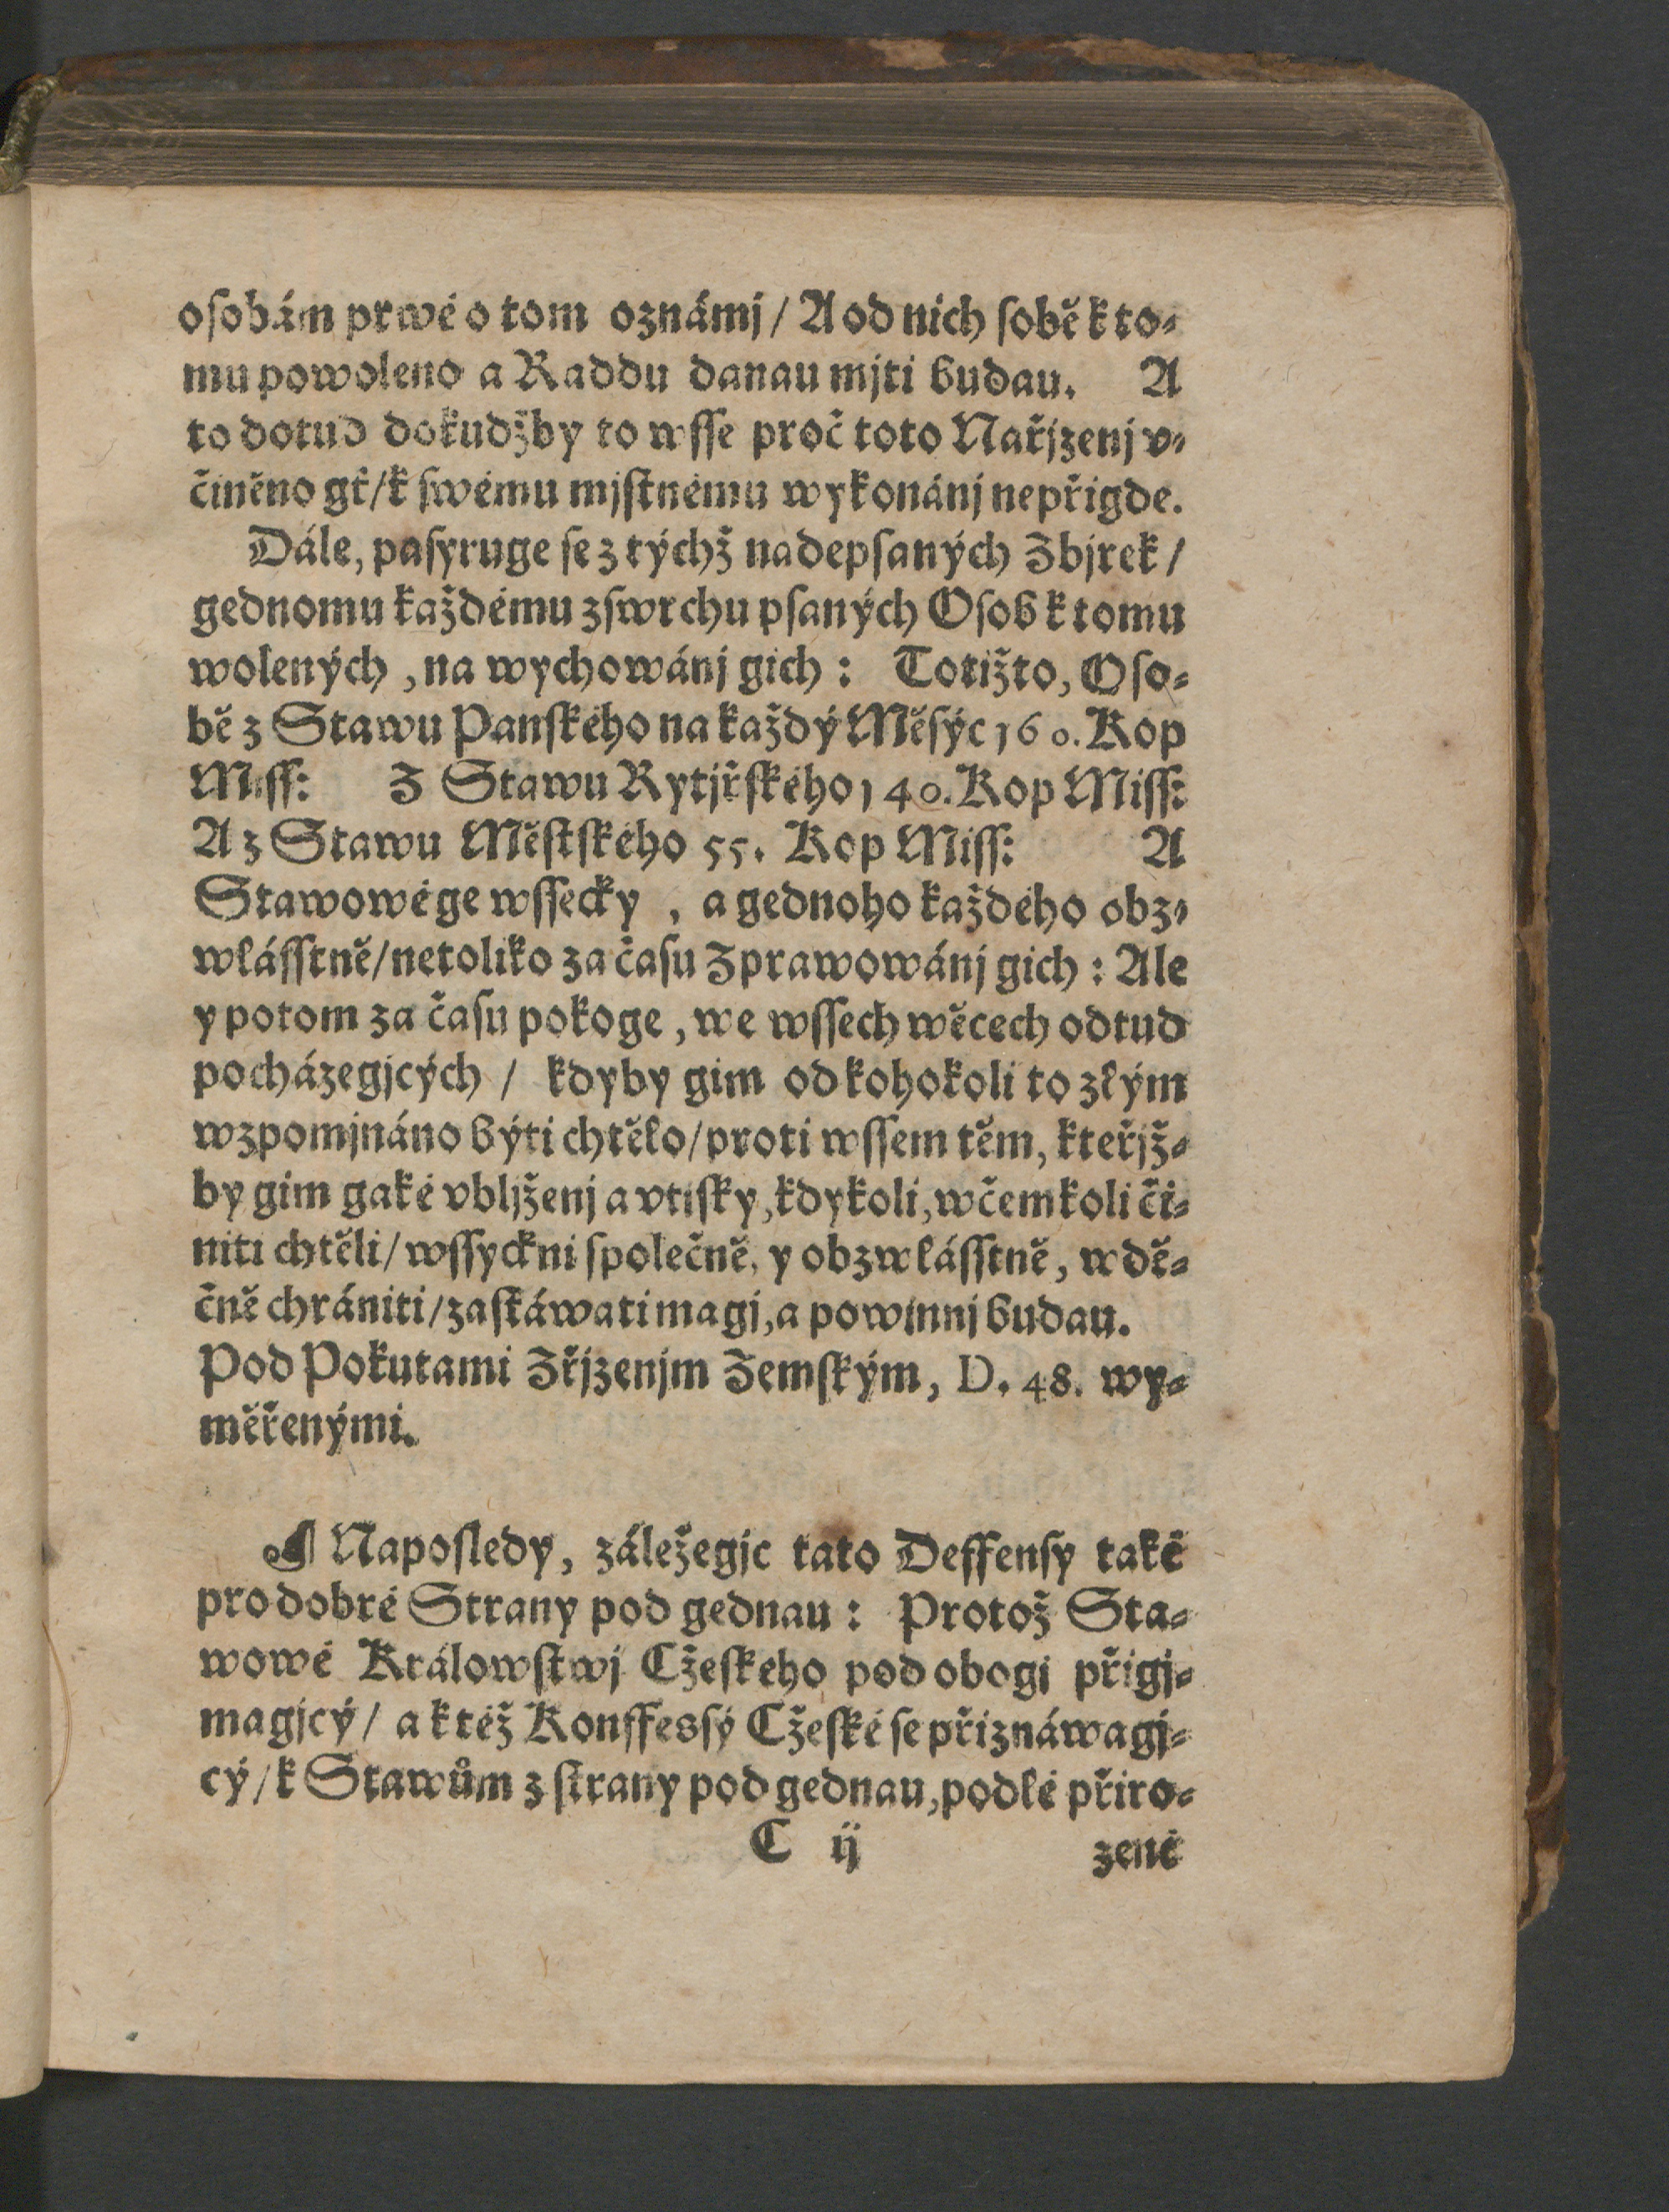 oſobám prwé o tom oznámj / A od nich ſobě k to-
mu powoleno a Raddu danau mjti budau. A
to dotud dokudžby to wſſe proč toto Nařjzenj v-
činěno gt̃ / k ſwému mjſtnému wykonánj nepřigde.
Dále, paſyruge ſe z týchž nadepſaných Zbjrek /
gednomu každému zſwrchu pſaných Oſob k tomu
wolených, na wychowánj gich : Totižto, Oſo-
bě z Stawu Panſkého na každý Měſýc 160. Kop
Miſſ: Z Stawu Rytjřſkého 140. Kop Miſſ:
A z Stawu Měſtſkého 55. Kop Miſſ: A
Stawowé ge wſſecky , a gednoho každého obz-
wláſſtně / netoliko za čaſu Zprawowánj gich : Ale
y potom za čaſu pokoge, we wſſech wěcech odtud
pocházegjcých / kdyby gim od kohokoli to zlým
wzpomjnáno býti chtělo / proti wſſem těm, kteřjž-
by gim gaké vbljženj a vtiſky, kdykoli, w čemkoli či-
niti chtěli / wſſyckni ſpolečně, y obzwláſſtně, wdě-
čně chrániti / zaſtáwati magj, a powinnj budau.
Pod Pokutami Zřjzenjm Zemſkým, D. 48. wy-
měřenými.
¶ Napoſledy, záležegjc tato Deffenſy také
pro dobré Strany pod gednau : Protož Sta-
wowé Králowſtwj Cžeſkého pod obogj přigj-
magjcý / a k též Konffessý Cžeſké ſe přiznáwagj-
cý / k Stawům z ſtrany pod gednau, podlé přiro-
C ij zené